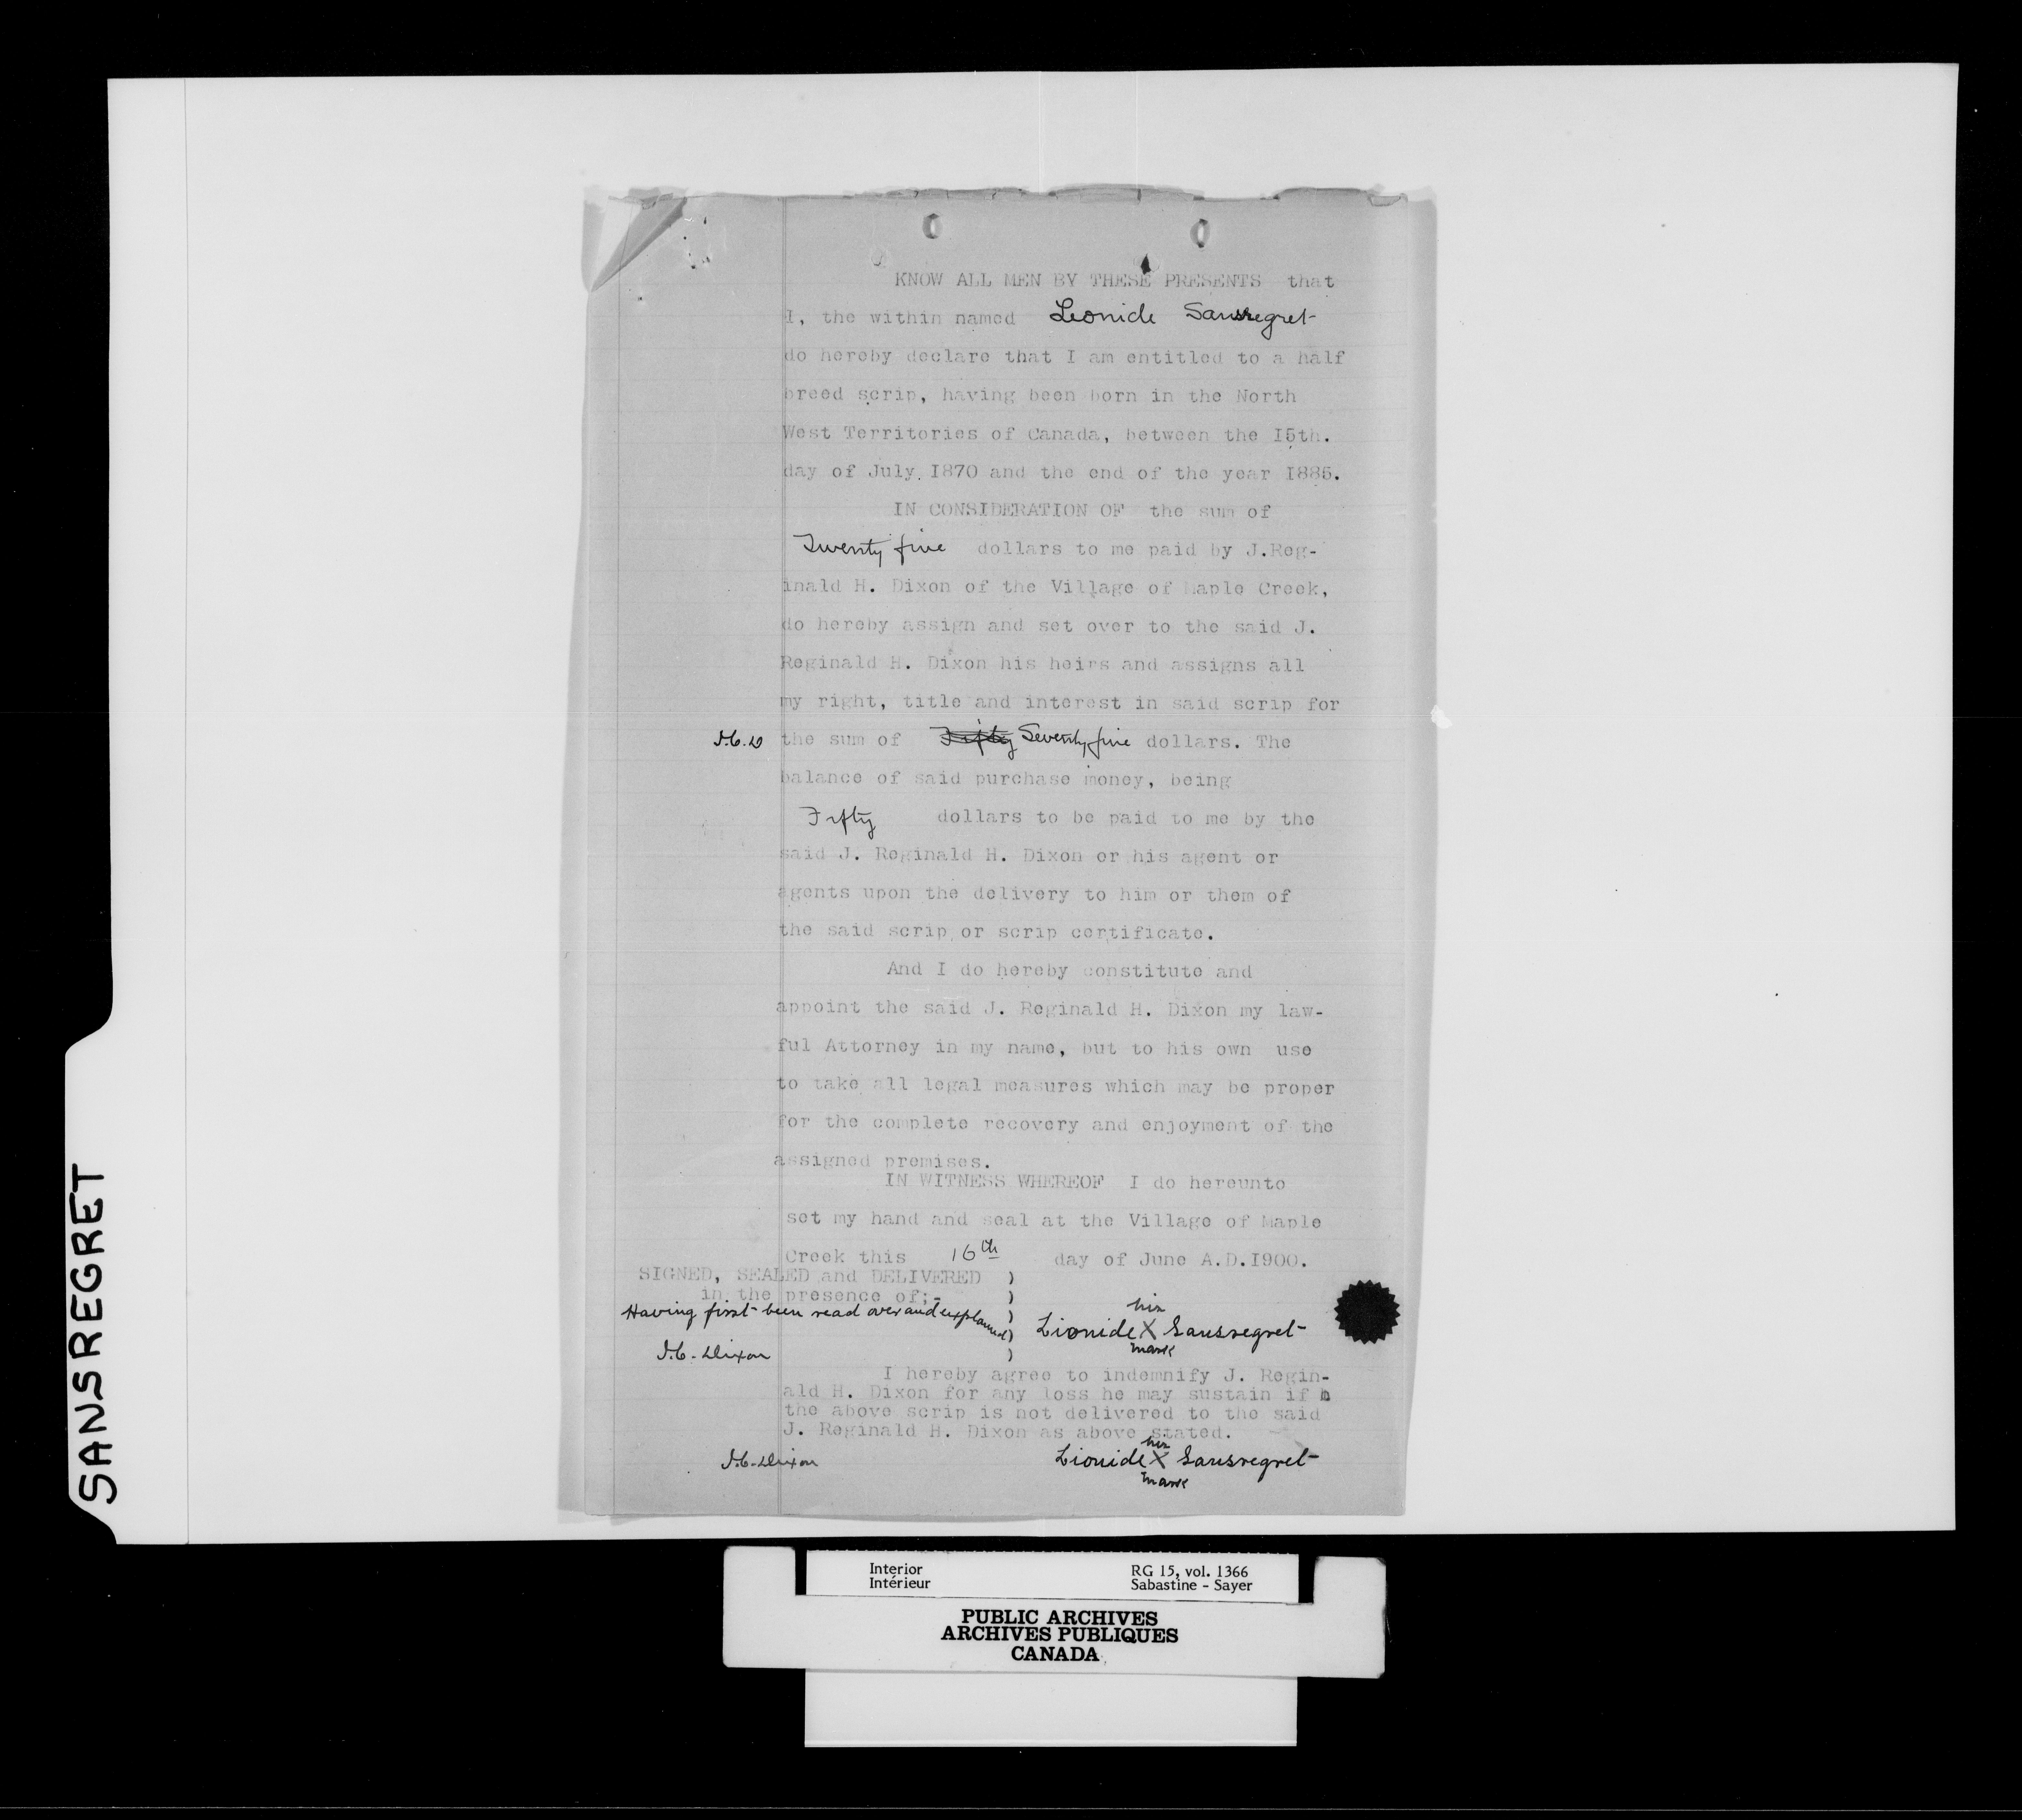 KNOW ALL MEN BY THESE PRESENTS that
I, the within named Leonide Sansregret
do hereby declare that I am entitled to a half
breed scrip, having been born in the North
West Territories of Canada, between the I5th.
day of July, I870 and the end of the year I885.
IN CONSIDERATION OF the sum of
Twenty five dollars to me paid by J.Reg-
inald H. Dixon of the Village of Maple Creek,
do hereby assign and set over to the said J.
Reginald H. Dixon his heirs and assigns all
my right, title and interest in said scrip for
J.C.D the sum of Fifty Seventy five dollars. The
balance of said purchase money, being
Fifty dollars to be paid to me by the
said J. Reginald H. Dixon or his agent or
agents upon the delivery to him or them of
the said scrip or scrip certificate.
And I do hereby constitute and
appoint the said J. Reginald H. Dixon my law-
ful Attorney in my name, but to his own use
to take all legal measures which may be proper
for the complete recovery and enjoyment of the
assigned premises.
IN WITNESS WHEREOF I do hereunto
set my hand and seal at the Village of Maple
Creek this 16th day of June A.D.I900.
SIGNED, SEALED and DELIVERED )
in the presence of;- )
Having first been read over and explained )
his
Lionide X Sansregret
mark
J.C. Dixon )
I hereby agree to indemnify J. Regin-
ald H. Dixon for any loss he may sustain if
the above scrip is not delivered to the said
J. Reginald H. Dixon as above stated.
his
J.C. Dixon Lionide X Sansregret
mark
SANSREGRET
Interior RG 15, vol. 1366
Intérieur Sabastine - Sayer
PUBLIC ARCHIVES
ARCHIVES PUBLIQUES
CANADA